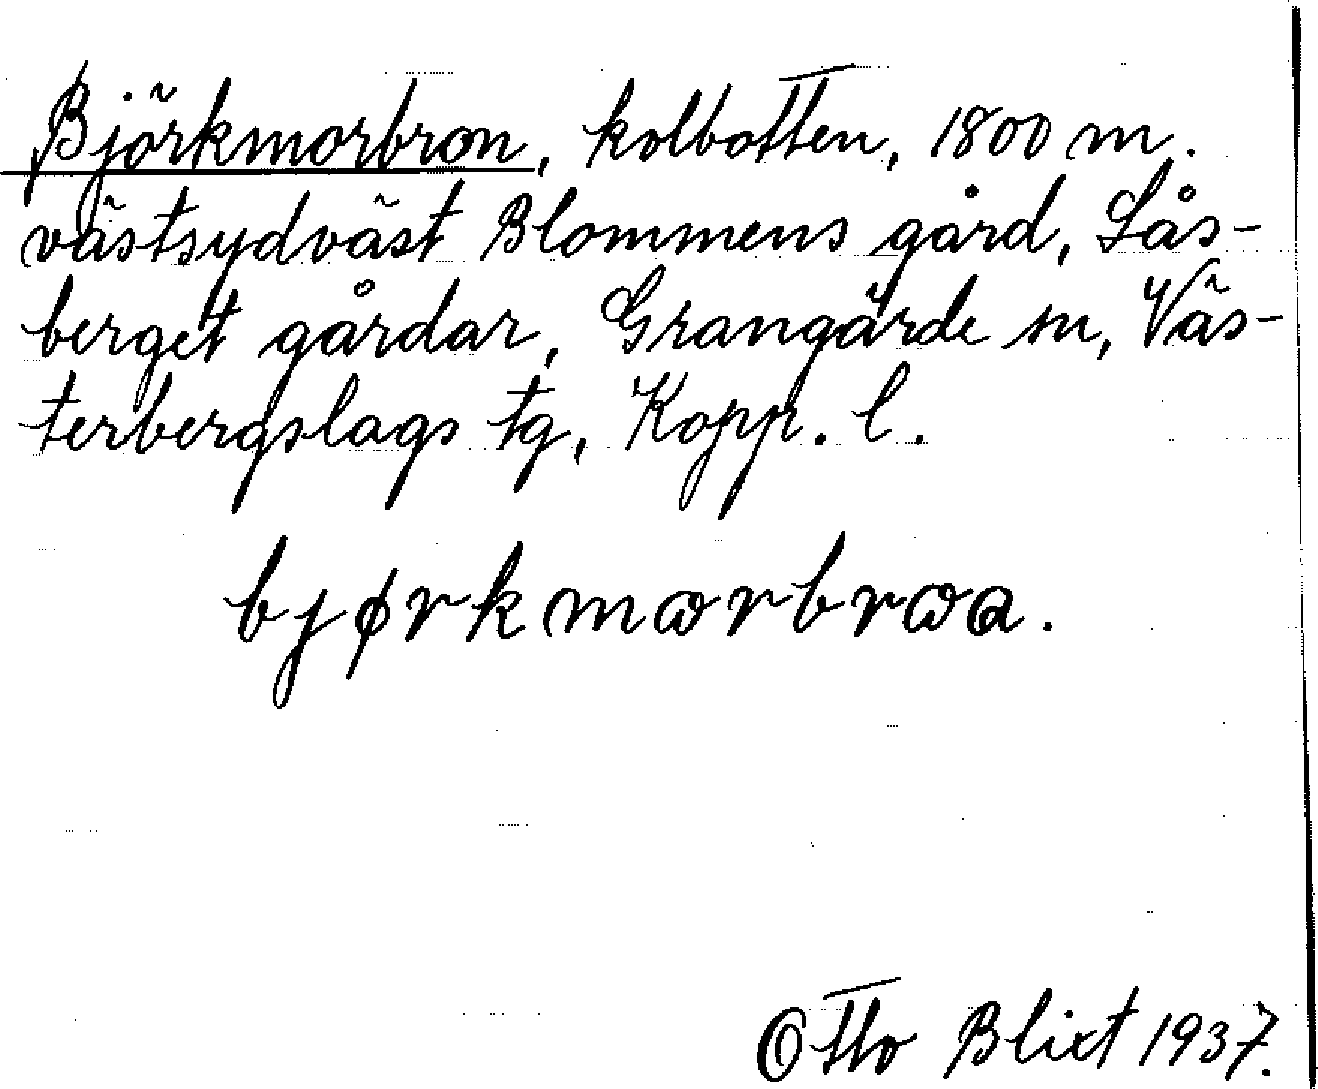 Björkmorbron, kolbotten, 1800 m.
västsydväst Blommens gård, Lås-
berget gårdar, Grangärde sn, Väs-
terbergslags tg, Kopp. l.
bjørkmɷrbrɷa.
Otto Blixt 1937.